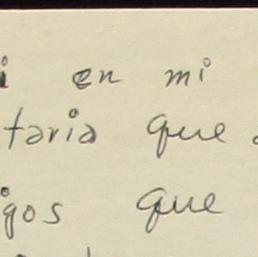 i en mi
taria que
igos que